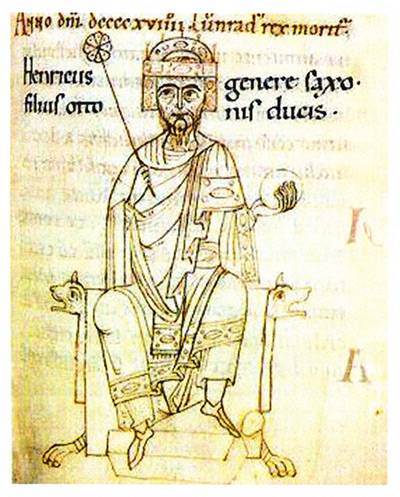 Anno dñi dccccxviiii Cunrad' rex morit'
Henricus genere saxo·
filius otto nis ducis·